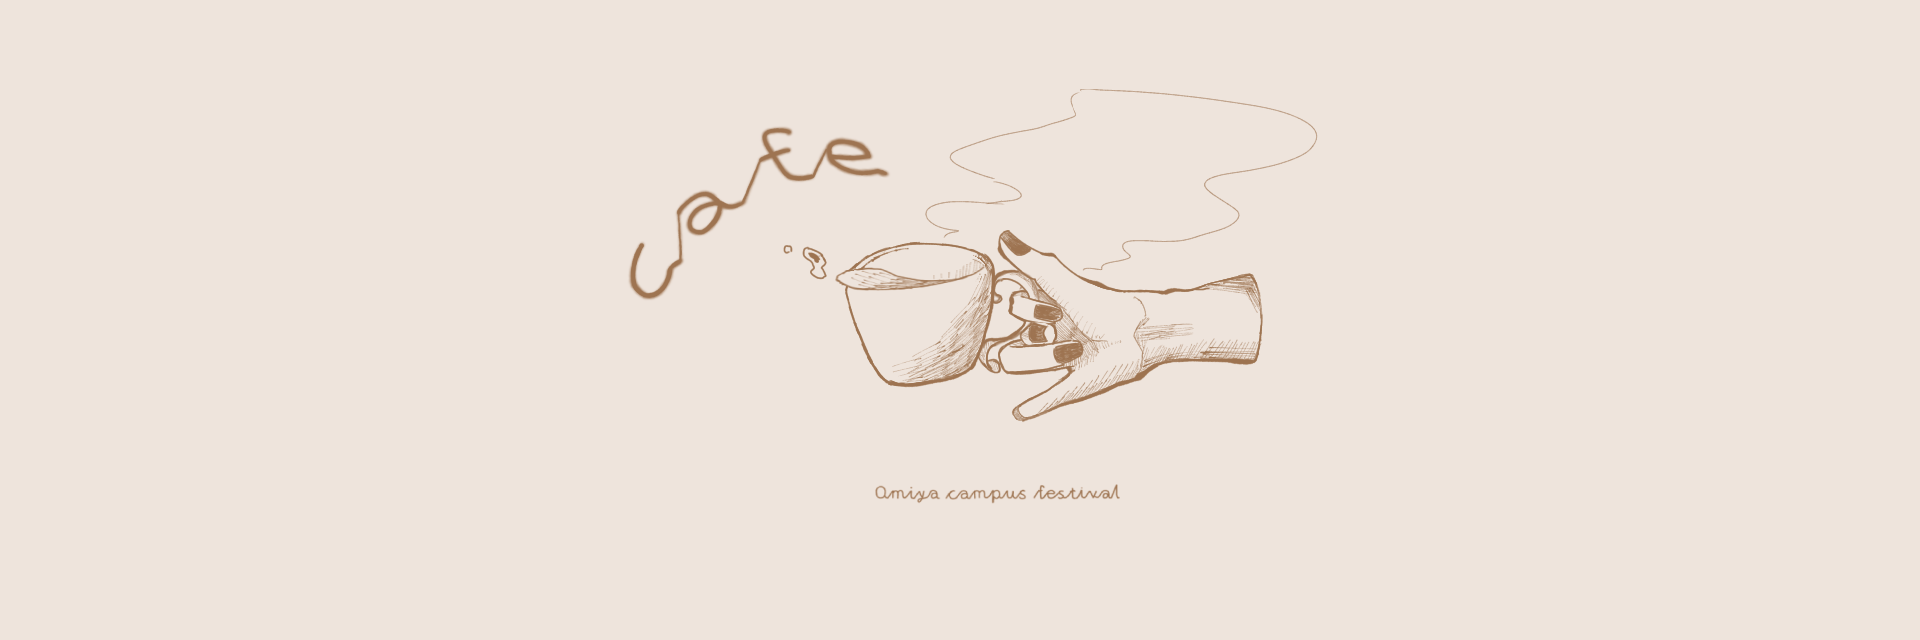 cafe
Amiya campus festival